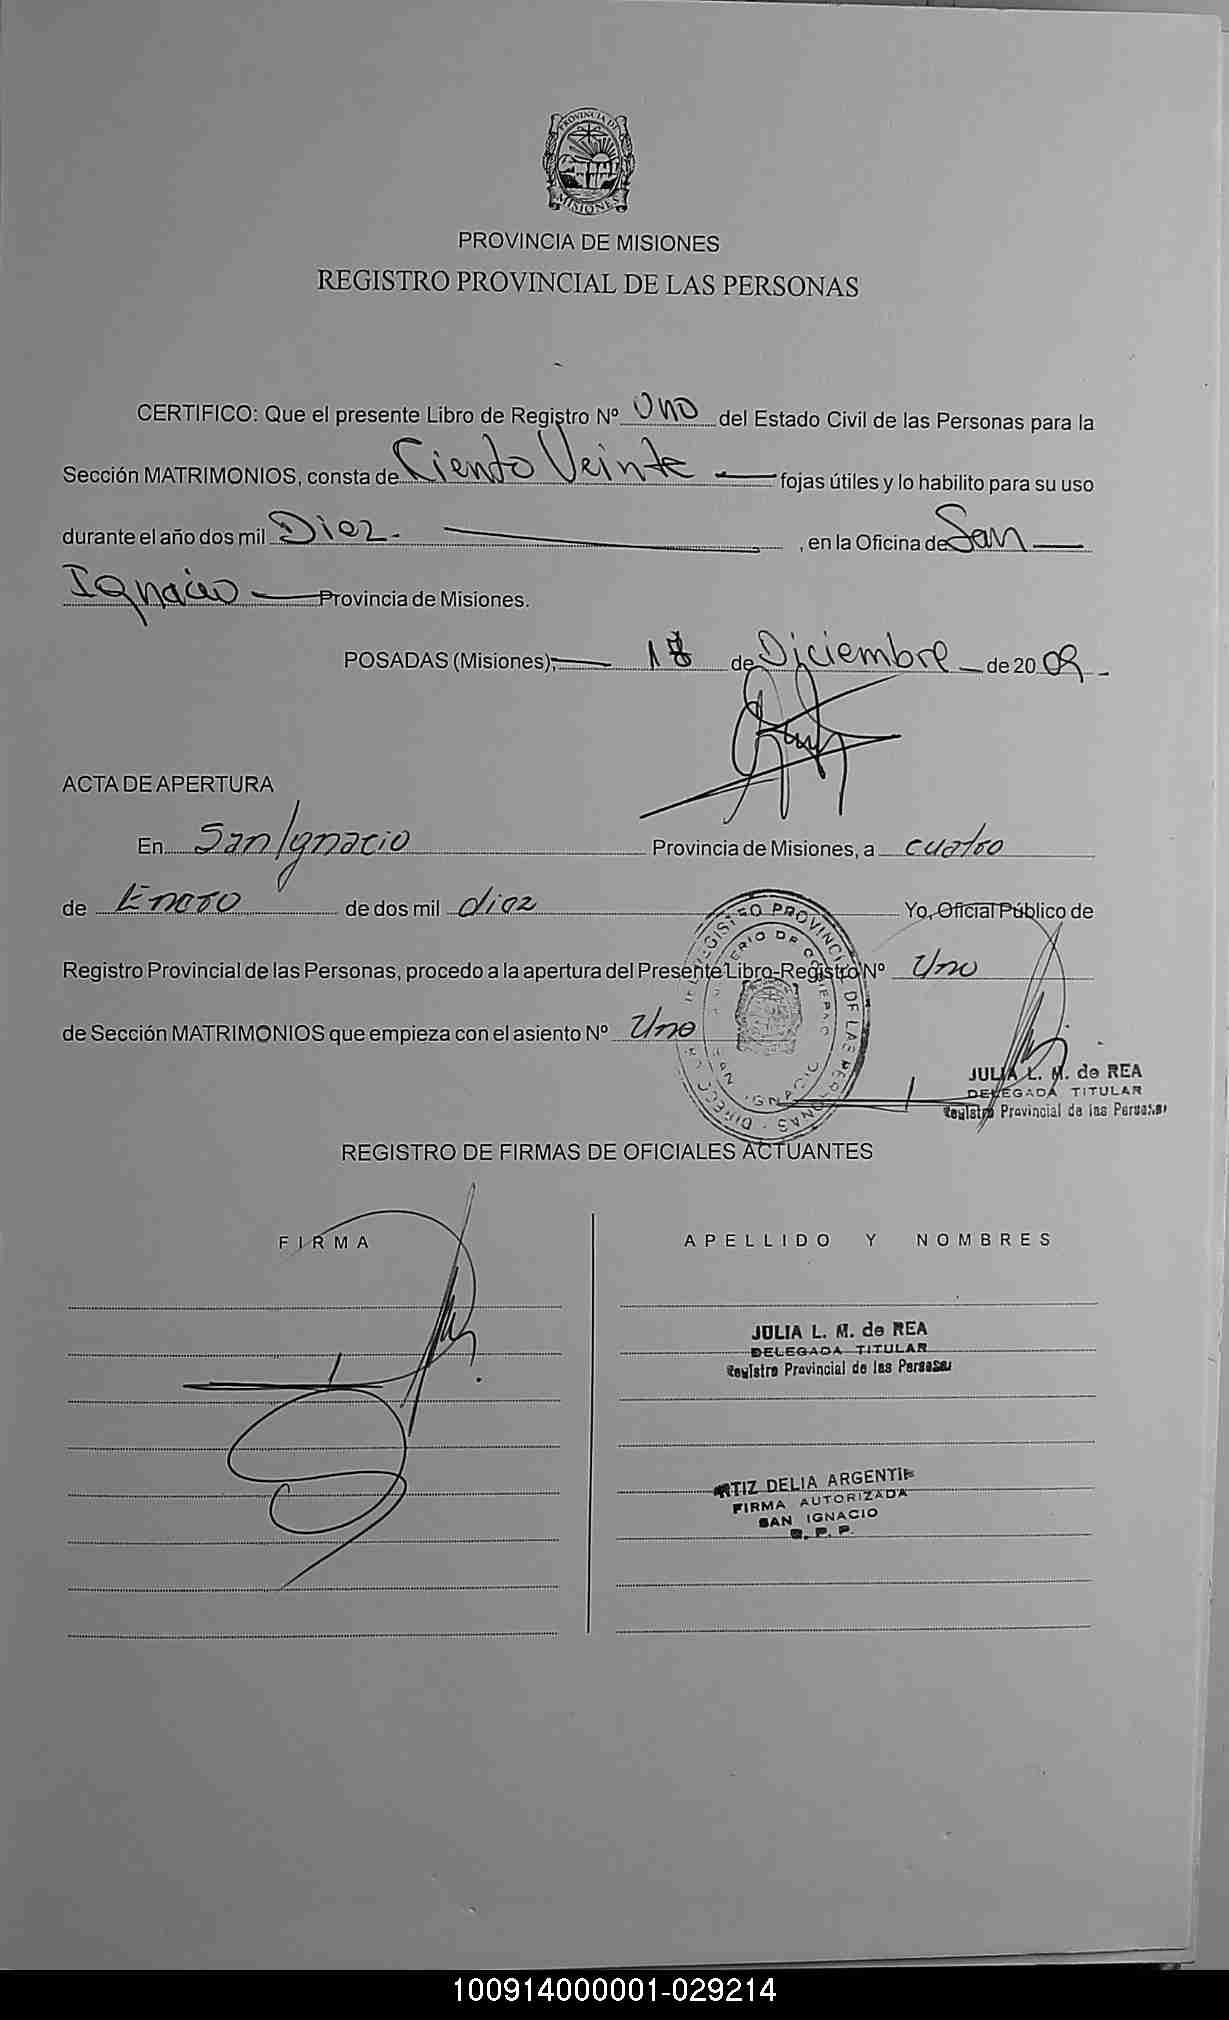 PROVINCIA DE
MISIONES
PROVINCIA DE MISIONES
REGISTRO PROVINCIAL DE LAS PERSONAS
CERTIFICO: Que el presente Libro de Registro Nº Uno del Estado Civil de las Personas para la
Sección MATRIMONIOS, consta de Ciento Veinte fojas útiles y lo habilito para su uso
durante el año dos mil Diez. , en la Oficina de San
Ignacio Provincia de Misiones.
POSADAS (Misiones), 18 de Diciembre de 2009
ACTA DE APERTURA
En San Ignacio Provincia de Misiones, a cuatro
de Enero de dos mil diez Yo, Oficial Público de
Registro Provincial de las Personas, procedo a la apertura del Presente Libro-Registro Nº Uno
de Sección MATRIMONIOS que empieza con el asiento Nº Uno
REGISTRO PROVINCIAL DE LAS PERSONAS
SAN IGNACIO
JULIA L. M. de REA
DELEGADA TITULAR
Registro Provincial de las Personas
REGISTRO DE FIRMAS DE OFICIALES ACTUANTES
FIRMA APELLIDO Y NOMBRES
JULIA L. M. de REA
DELEGADA TITULAR
Registro Provincial de las Personas
DELIA
FIRMA AUTORIZADA
SAN IGNACIO
100914000001-029214